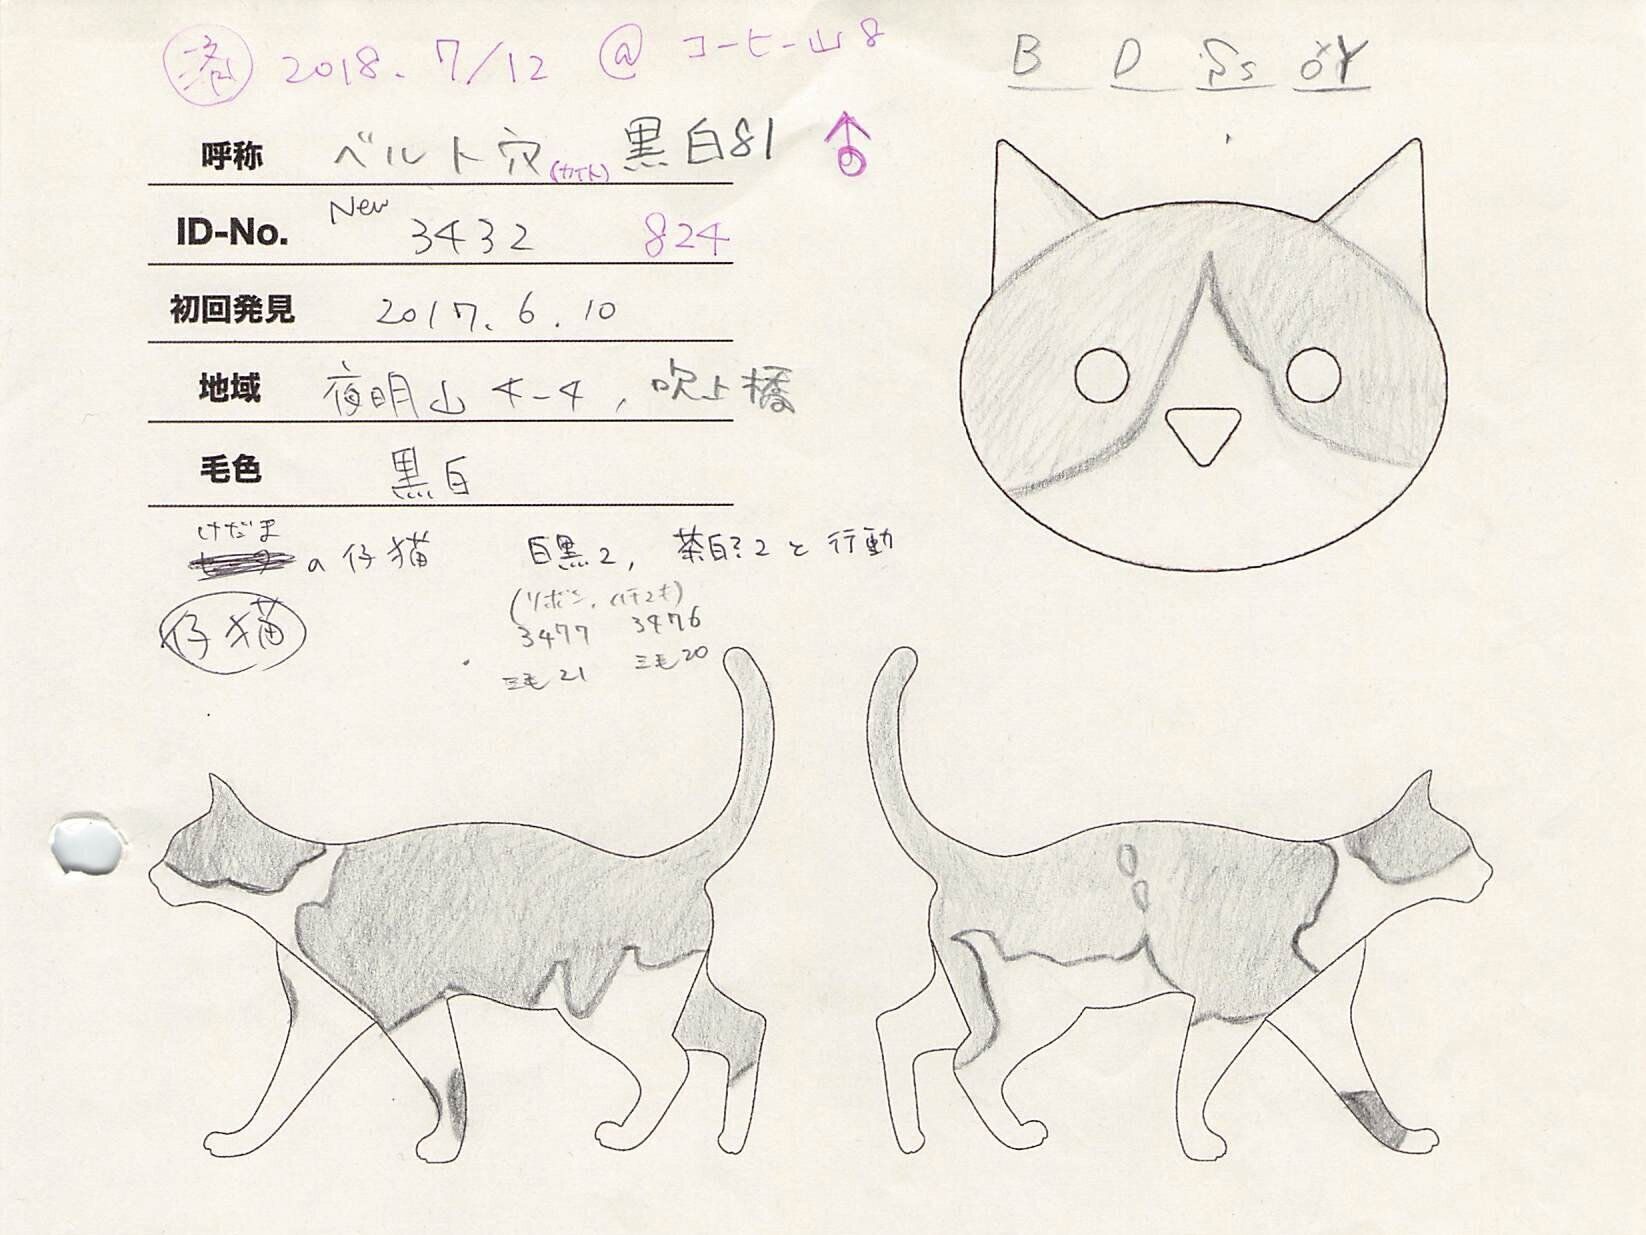 済 2018.7/12 @ コーヒー山8
B D Ss oY
呼称 ベルト穴 (カイト) 黒白81
ID-No. New 3432 824
初回発見 2017.6.10
地域 夜明山 4-4, 吹上橋
毛色 黒白
けだま
の仔猫 白黒2, 茶白?2と行動
仔猫
(リボン, ハチスケ)
3477 3476
三毛21 三毛20